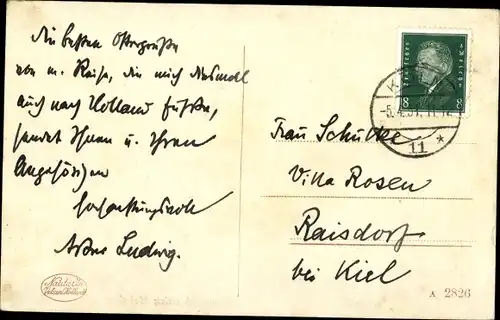 Die besten Ostergrüße
von m. Reise, die mich diesmal
auch nach Holland führte,
sendet Ihnen u. Ihren
Angehörigen
hochachtungsvoll
Ludwig.
Frau Schultze
Villa Rosen
Raisdorf
bei Kiel
Deutsches Reich
8 8
K
-5.4.31. 11-12
* 11 *
A 2826